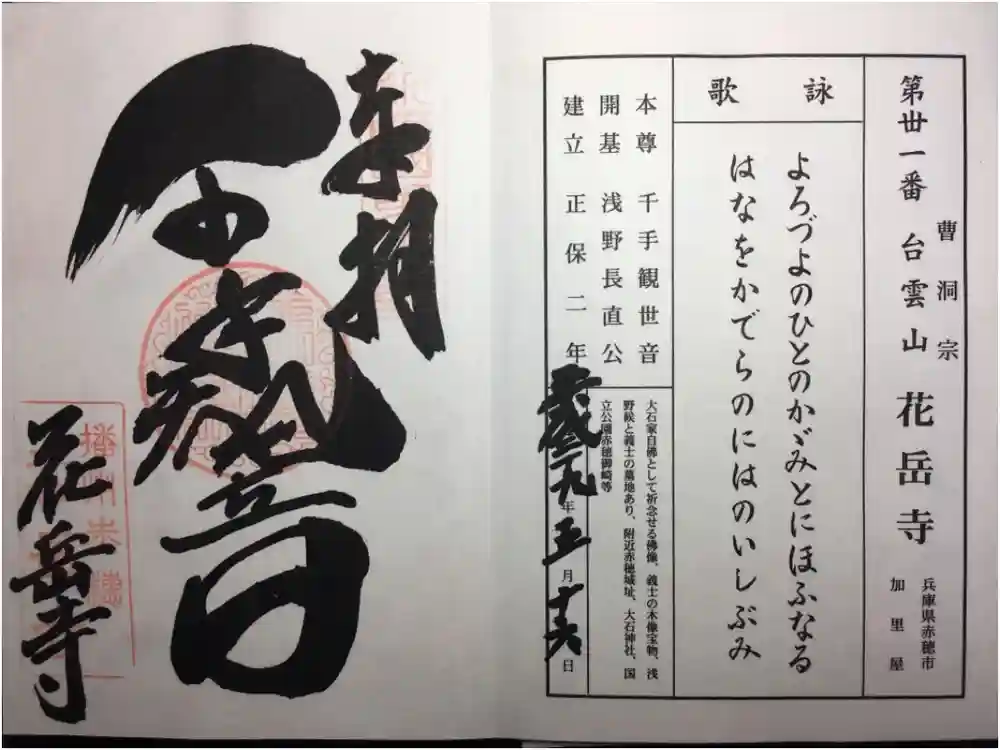 第丗一番 台雲山 花岳寺
曹洞宗
兵庫県赤穂市
加里屋
詠歌
よろづよのひとのかゞみとにほふなる
はなをかでらのにはのいしぶみ
本尊 千手観世音
開基 浅野長直公
建立 正保二年
大石家自佛として祈念せる佛像、義士の木像宝物、浅
野候と義士の墓地あり、附近赤穂城址、大石神社、国
立公園赤穂御崎等
九年五月十六日
奉拝
千手観世音
花岳寺
播州赤穂